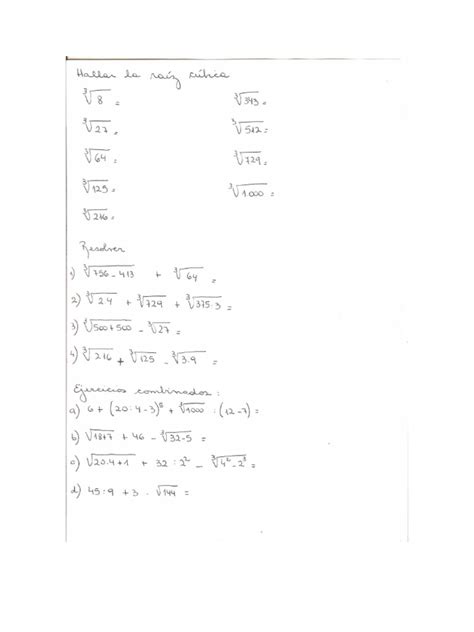 Hallar la raíz cúbica
∛8 =    ∛343 =
∛27 =    ∛512 =
∛64 =    ∛729 =
∛125 =    ∛1.000 =
∛216 =
Resolver
1) ∛756-413 + ∛64 =
2) ∛2.4 + ∛729 + ∛375.3 =
3) ∛500+500 - ∛27 =
4) ∛216 + ∛125 - ∛3.9 =
Ejercicios combinados:
a) 6 + (20:4-3)⁵ + ∛1000 : (12-7) =
b) √18+7 + 46 - ∛32-5 =
c) √20.4+1 + 32:2² - ∛4²-2³ =
d) 45:9 + 3 . √144 =